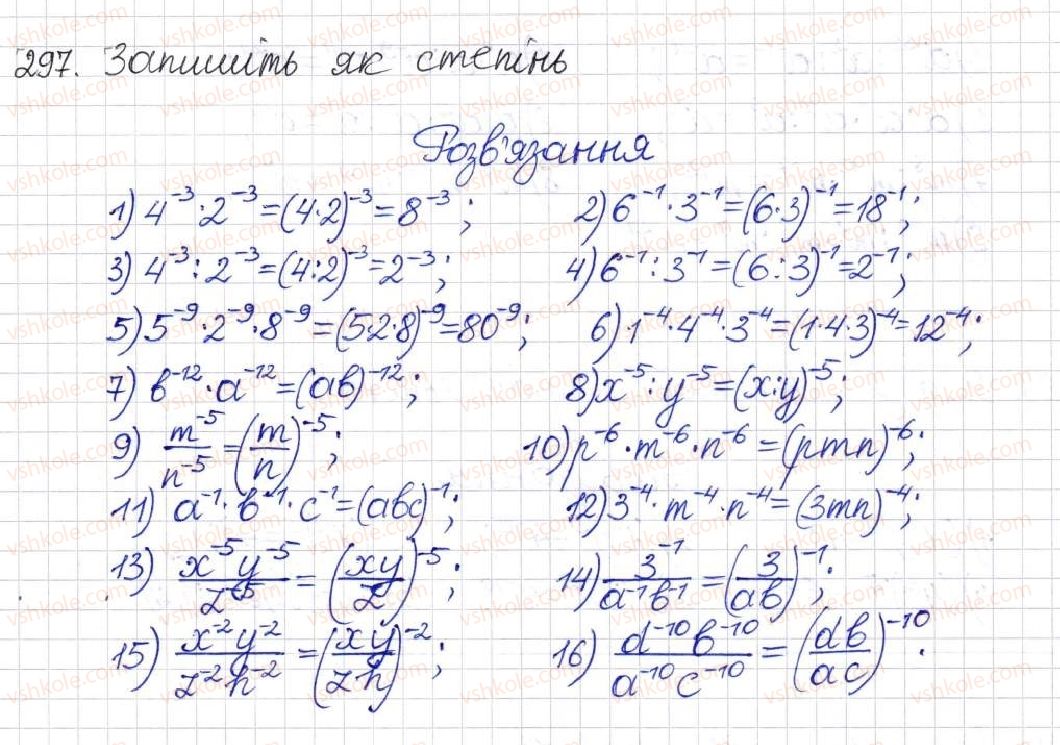 297. Запишіть як степінь
Розв'язання
1) 4⁻³·2⁻³=(4·2)⁻³=8⁻³; 2) 6⁻¹·3⁻¹=(6·3)⁻¹=18⁻¹;
3) 4⁻³:2⁻³=(4:2)⁻³=2⁻³; 4) 6⁻¹:3⁻¹=(6:3)⁻¹=2⁻¹;
5) 5⁻⁹·2⁻⁹·8⁻⁹=(5·2·8)⁻⁹=80⁻⁹; 6) 1⁻⁴·4⁻⁴·3⁻⁴=(1·4·3)⁻⁴=12⁻⁴;
7) в⁻¹²·а⁻¹²=(ав)⁻¹²; 8) x⁻⁵:y⁻⁵=(x:y)⁻⁵;
9) m⁻⁵/n⁻⁵=(m/n)⁻⁵; 10) p⁻⁶·m⁻⁶·n⁻⁶=(pmn)⁻⁶;
11) а⁻¹·в⁻¹·с⁻¹=(авс)⁻¹; 12) 3⁻⁴·m⁻⁴·n⁻⁴=(3mn)⁻⁴;
13) x⁻⁵y⁻⁵/z⁻⁵=(xy/z)⁻⁵; 14) 3⁻¹/а⁻¹в⁻¹=(3/ав)⁻¹;
15) x⁻²y⁻²/z⁻²h⁻²=(xy/zh)⁻²; 16) d⁻¹⁰в⁻¹⁰/а⁻¹⁰с⁻¹⁰=(dв/ас)⁻¹⁰.